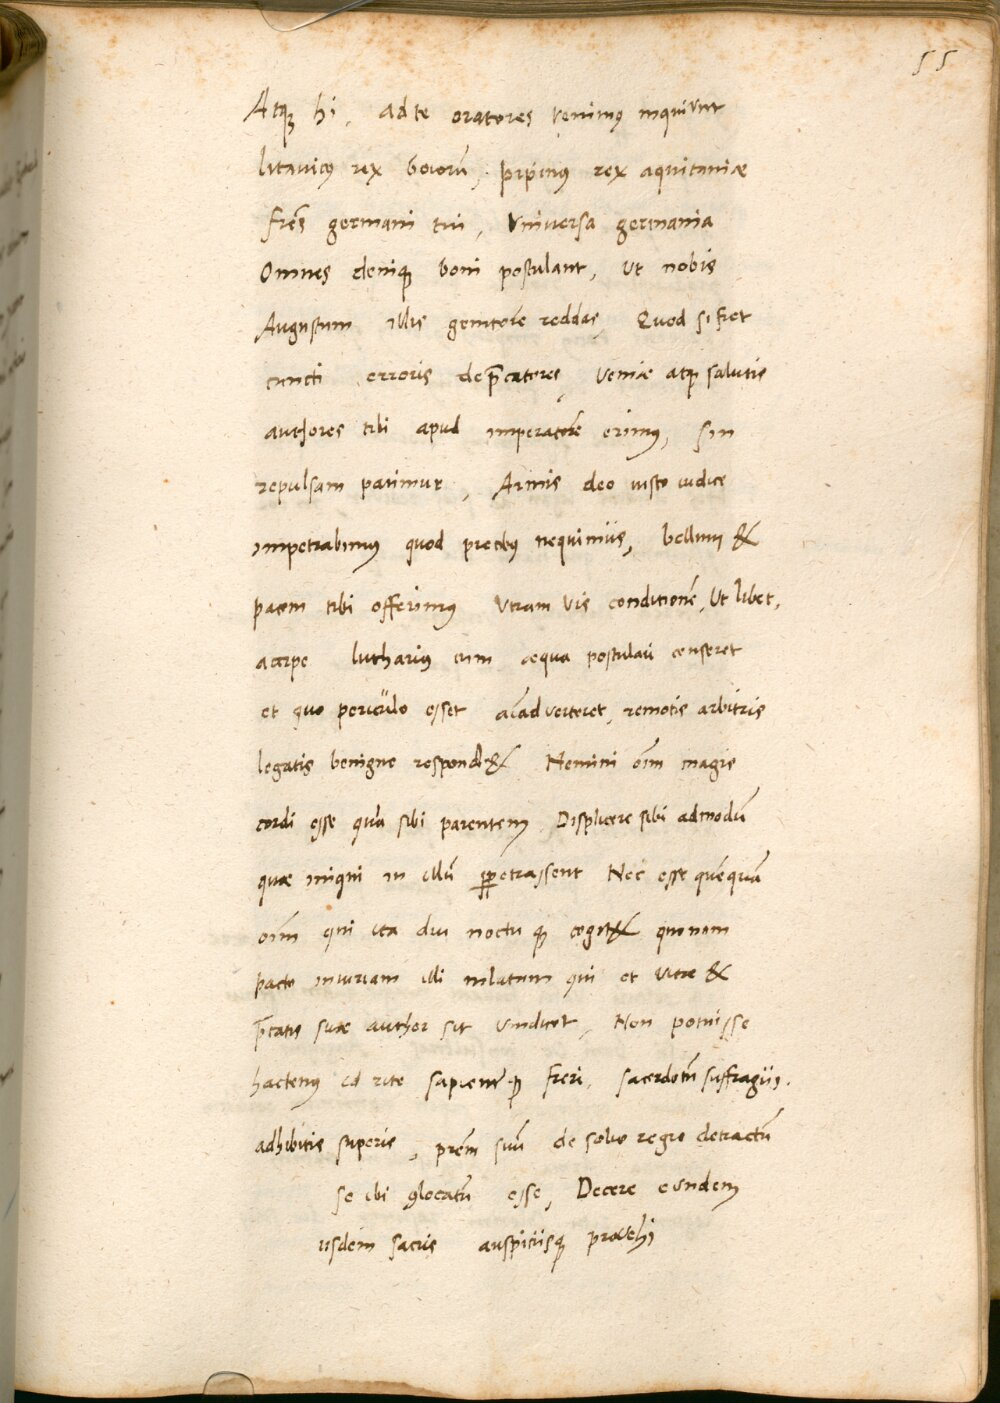 55
Atq; hi, ad te oratores venimus inquiunt
litavicus rex boiorũ, pipinus rex aquitaniæ
frēs germani tui, Vniuersa germania
Omnes deniq; boni postulant, ut nobis
Augustum illis genitorē reddas, Quod si fiet
cuncti erroris dep̄catores, veniæ atq; salutis
authores tibi apud imperatorē erimus, sin
repulsam patimur, Armis deo iusto iudice
impetrabimus quod precibus nequimus, bellum &
pacem tibi offerimus Vtram vis conditionē, Ut libet,
accipe lutharius cum æqua postulari censeret
et quo periculo esset aīadverteret, remotis arbitris
legatis benigne respond& Nemini oīm magis
cordi esse quā sibi parentem Displicere sibi admodũ
quæ iniqui in illũ ꝑpetrassent Nec esse quēquā
oīm qui ita diu noctu q; cogit& quonam
pacto iniuriam illi inlatam qui et vitæ &
p̄tatis suæ author sit vindicet, Non potuisse
hactenus id rite sapienterq; fieri, sacerdotũ suffragiis,
adhibitis superis, prēm suũ de solio regio detractũ
se ibi collocatũ esse, Decere eundem
iisdem sacris auspiciisq; provehi